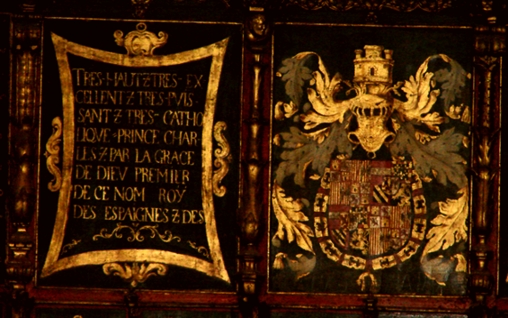 TRES·HAULT⁊TRES·EX
CELLENT⁊TRES·PUIS
SANT⁊TRES·CATHO
LIQUE·PRINCE CHAR
LES⁊PAR LA GRACE
DE DIEV PREMIER
DE CE NOM ROY
DES ESPAIGNES⁊DES